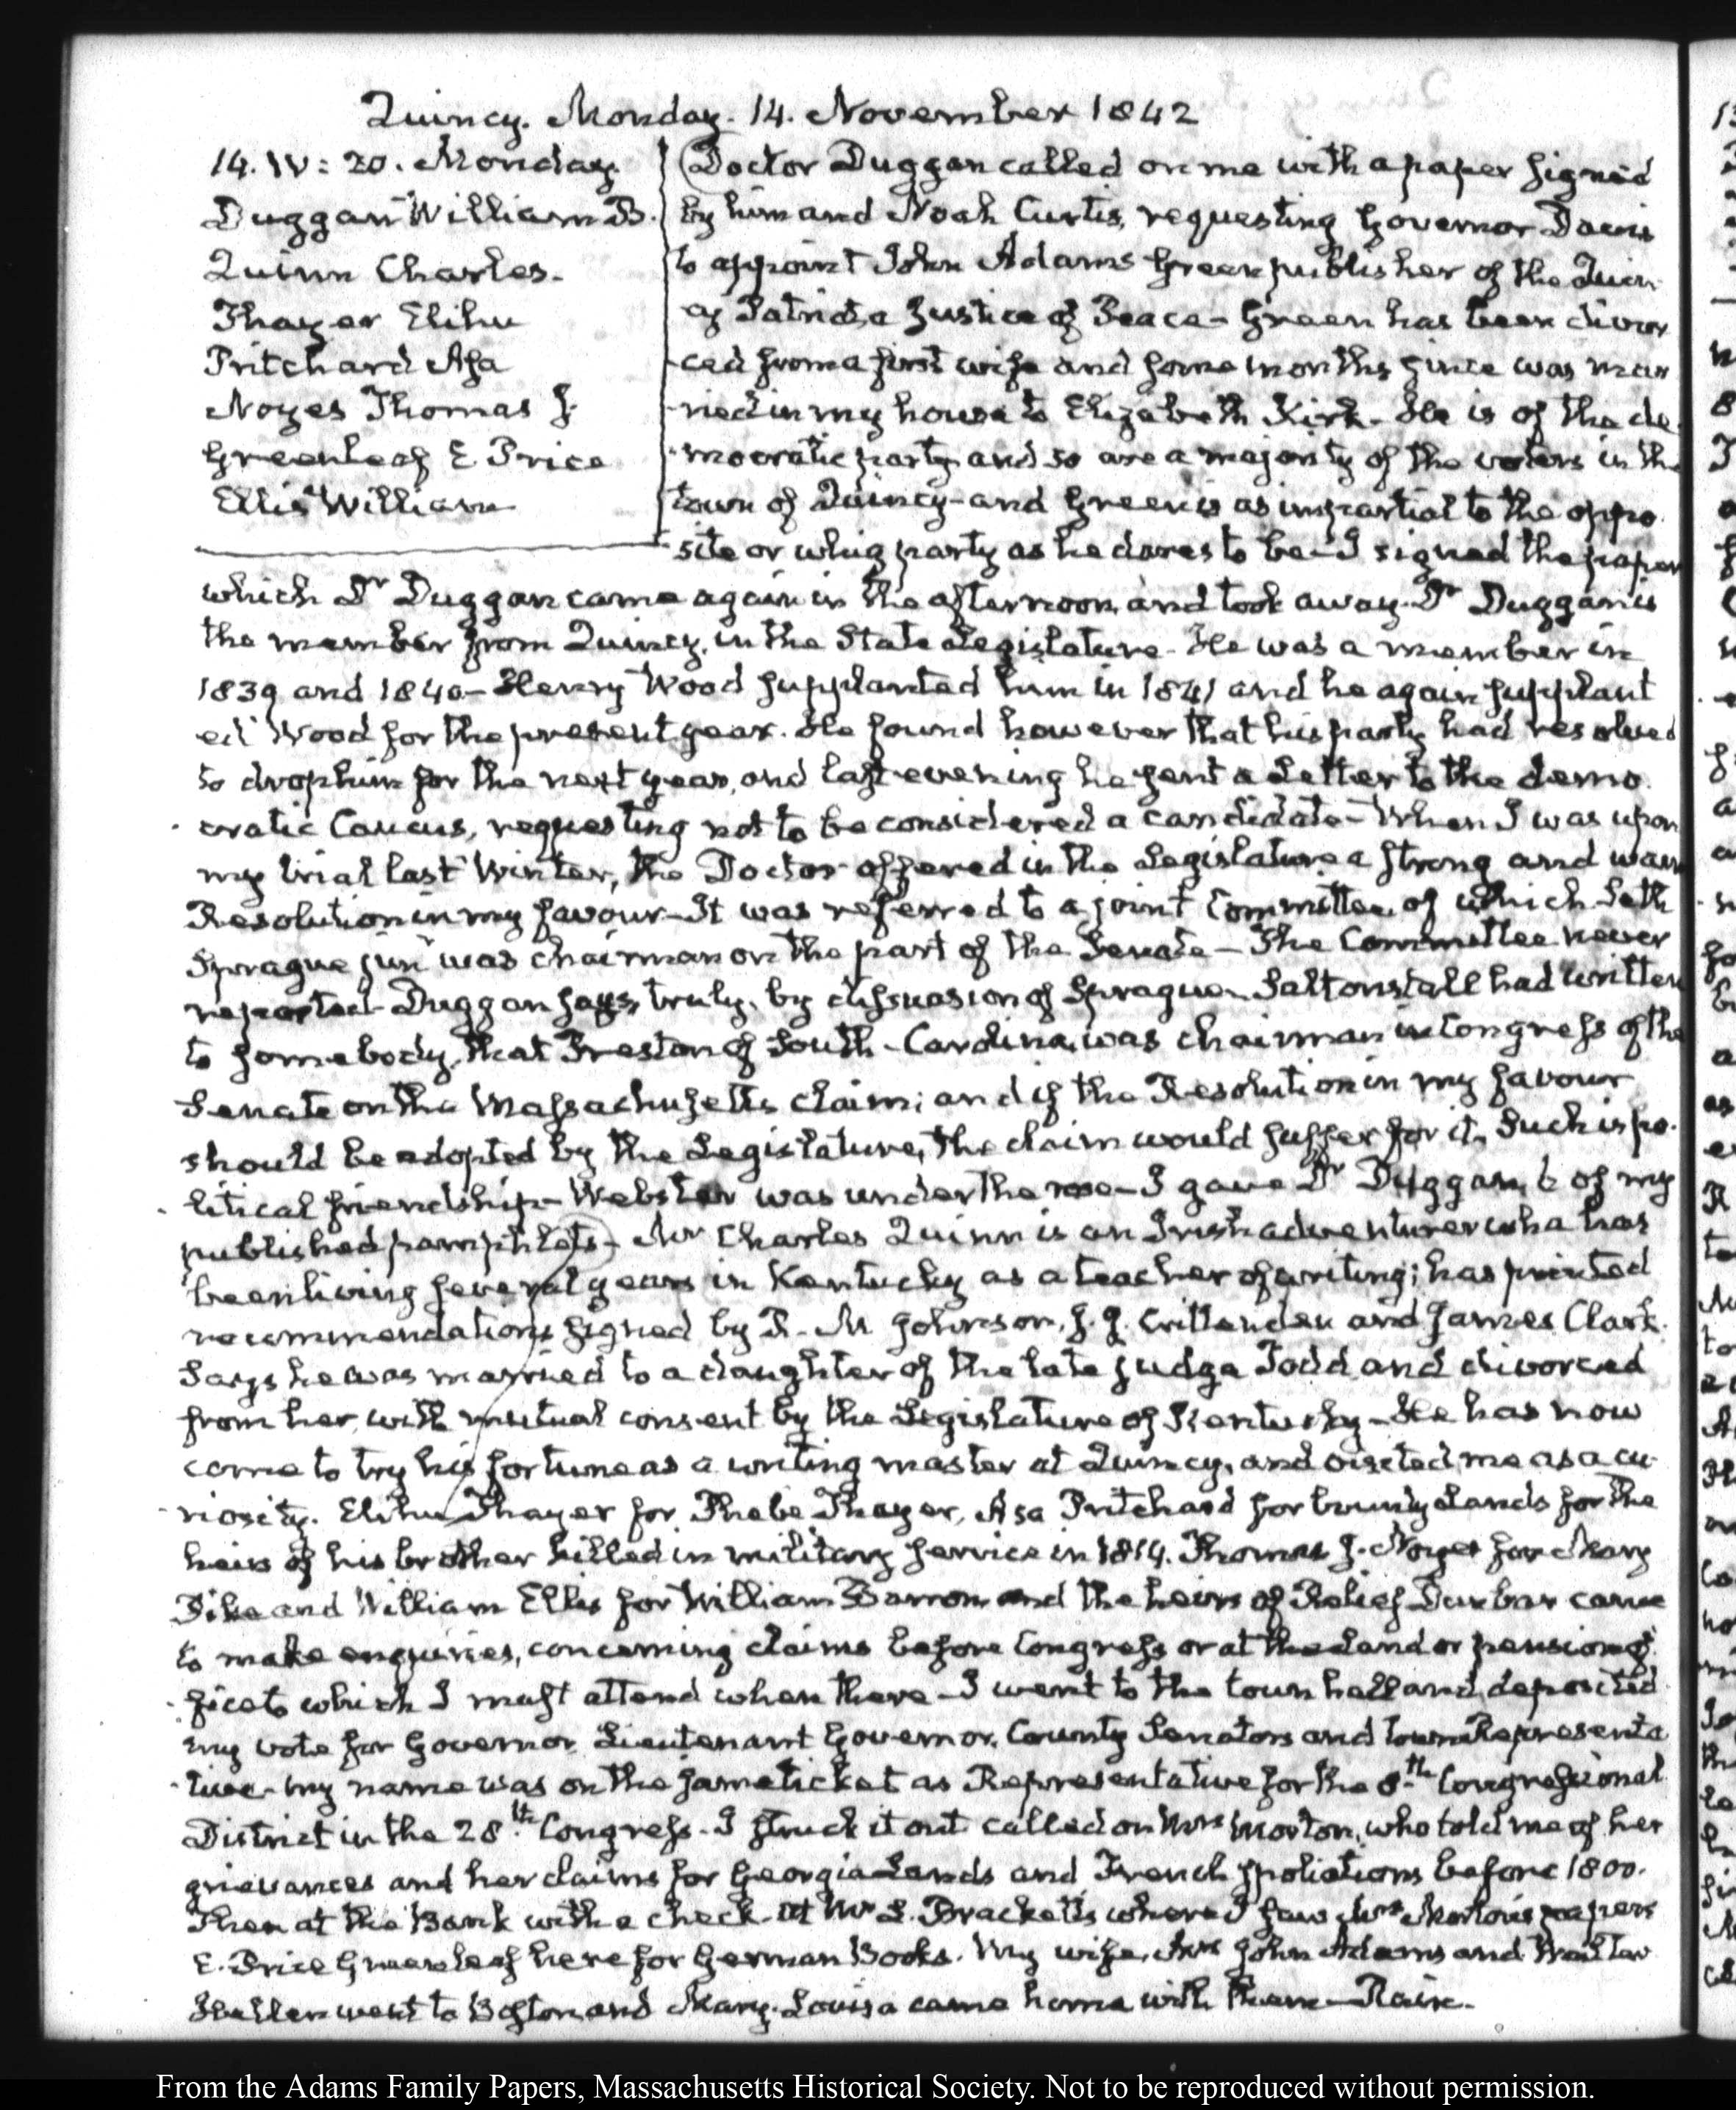 Quincy. Monday. 14. November 1842
14. IV: 20. Monday
Duggan William B.
Quinn Charles.
Thayer Elihu
Pritchard Asa
Noyes Thomas J.
Greenleaf E. Price
Ellis William
Doctor Duggan called on me with a paper signed
by him and Noah Curtis, requesting Governor Davis
to appoint John Adams Green publisher of the Quin-
cy Patriot, a Justice of Peace— Green has been divor
ced from a first wife and some months since was mar
ried in my house to Elizabeth Kirk— He is of the de
mocratic party and so are a majority of the voters in the
town of Quincy— and Green is as impartial to the oppo
site or whig party as he dares to be— I signed the paper
which Dr Duggan came again in the afternoon, and took away. Dr Duggan is
the member from Quincy, in the State Legislature. He was a member in
1839 and 1840— Henry Wood supplanted him in 1841 and he again supplant
ed Wood for the present year. He found however that his party had resolved
to drop him for the next year, and last evening he sent a Letter to the demo
cratic Caucus, requesting not to be considered a candidate— When I was upon
my trial last Winter, the Doctor offered in the Legislature a strong and warm
Resolution in my favour— It was referred to a joint Committee, of which Seth
Sprague junr was chairman on the part of the Senate— The Committee never
reported— Duggan says, truly, by dissuasion of Sprague— Saltonstall had written
to somebody, that Preston of South-Carolina, was chairman in Congress of the
Senate on the Massachusetts claim; and if the Resolution in my favour
should be adopted by the Legislature, the claim would suffer for it. Such is po-
litical friendship— Webster was under the rose— I gave Dr Duggan, 6 of my
published pamphlets— Mr Charles Quinn is an Irish adventurer who has
been living several years in Kentucky as a teacher of writing; has printed
recommendations signed by R. M Johnson, J. J. Crittenden and James Clark.
Says he was married to a daughter of the late judge Todd, and divorced
from her, with mutual consent by the Legislature of Kentucky— He has now
come to try his fortune as a writing master at Quincy, and visited me as a cu-
riosity. Elihu Thayer for Phebe Thayer, Asa Pritchard for bounty Lands for the
heirs of his brother killed in military service in 1814. Thomas J. Noyes for Mary
Pike and William Ellis for William Barron and the heirs of Relief Dunbar came
to make enquiries, concerning claims before Congress or at the Land or pension of-
fices to which I must attend when there— I went to the town hall and deposited
my vote for Governor, Lieutenant Governor, County Senators and town Representa
tive— my name was on the same ticket as Representative for the 8th Congressional
District in the 28th Congress— I struck it out called on Mrs Morton, who told me of her
grievances and her claims for Georgia Lands and French spoliations before 1800.
Then at the Bank with a check— at Mr L. Brackett's where I saw Mrs Morton's papers
E. Price Greenleaf here for German Books. My wife, Mrs John Adams and Walter
Hellen went to Boston and Mary-Louisa came home with them— Rain.
From the Adams Family Papers, Massachusetts Historical Society. Not to be reproduced without permission.